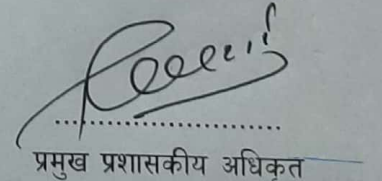 ............................
प्रमुख प्रशासकीय अधिकृत